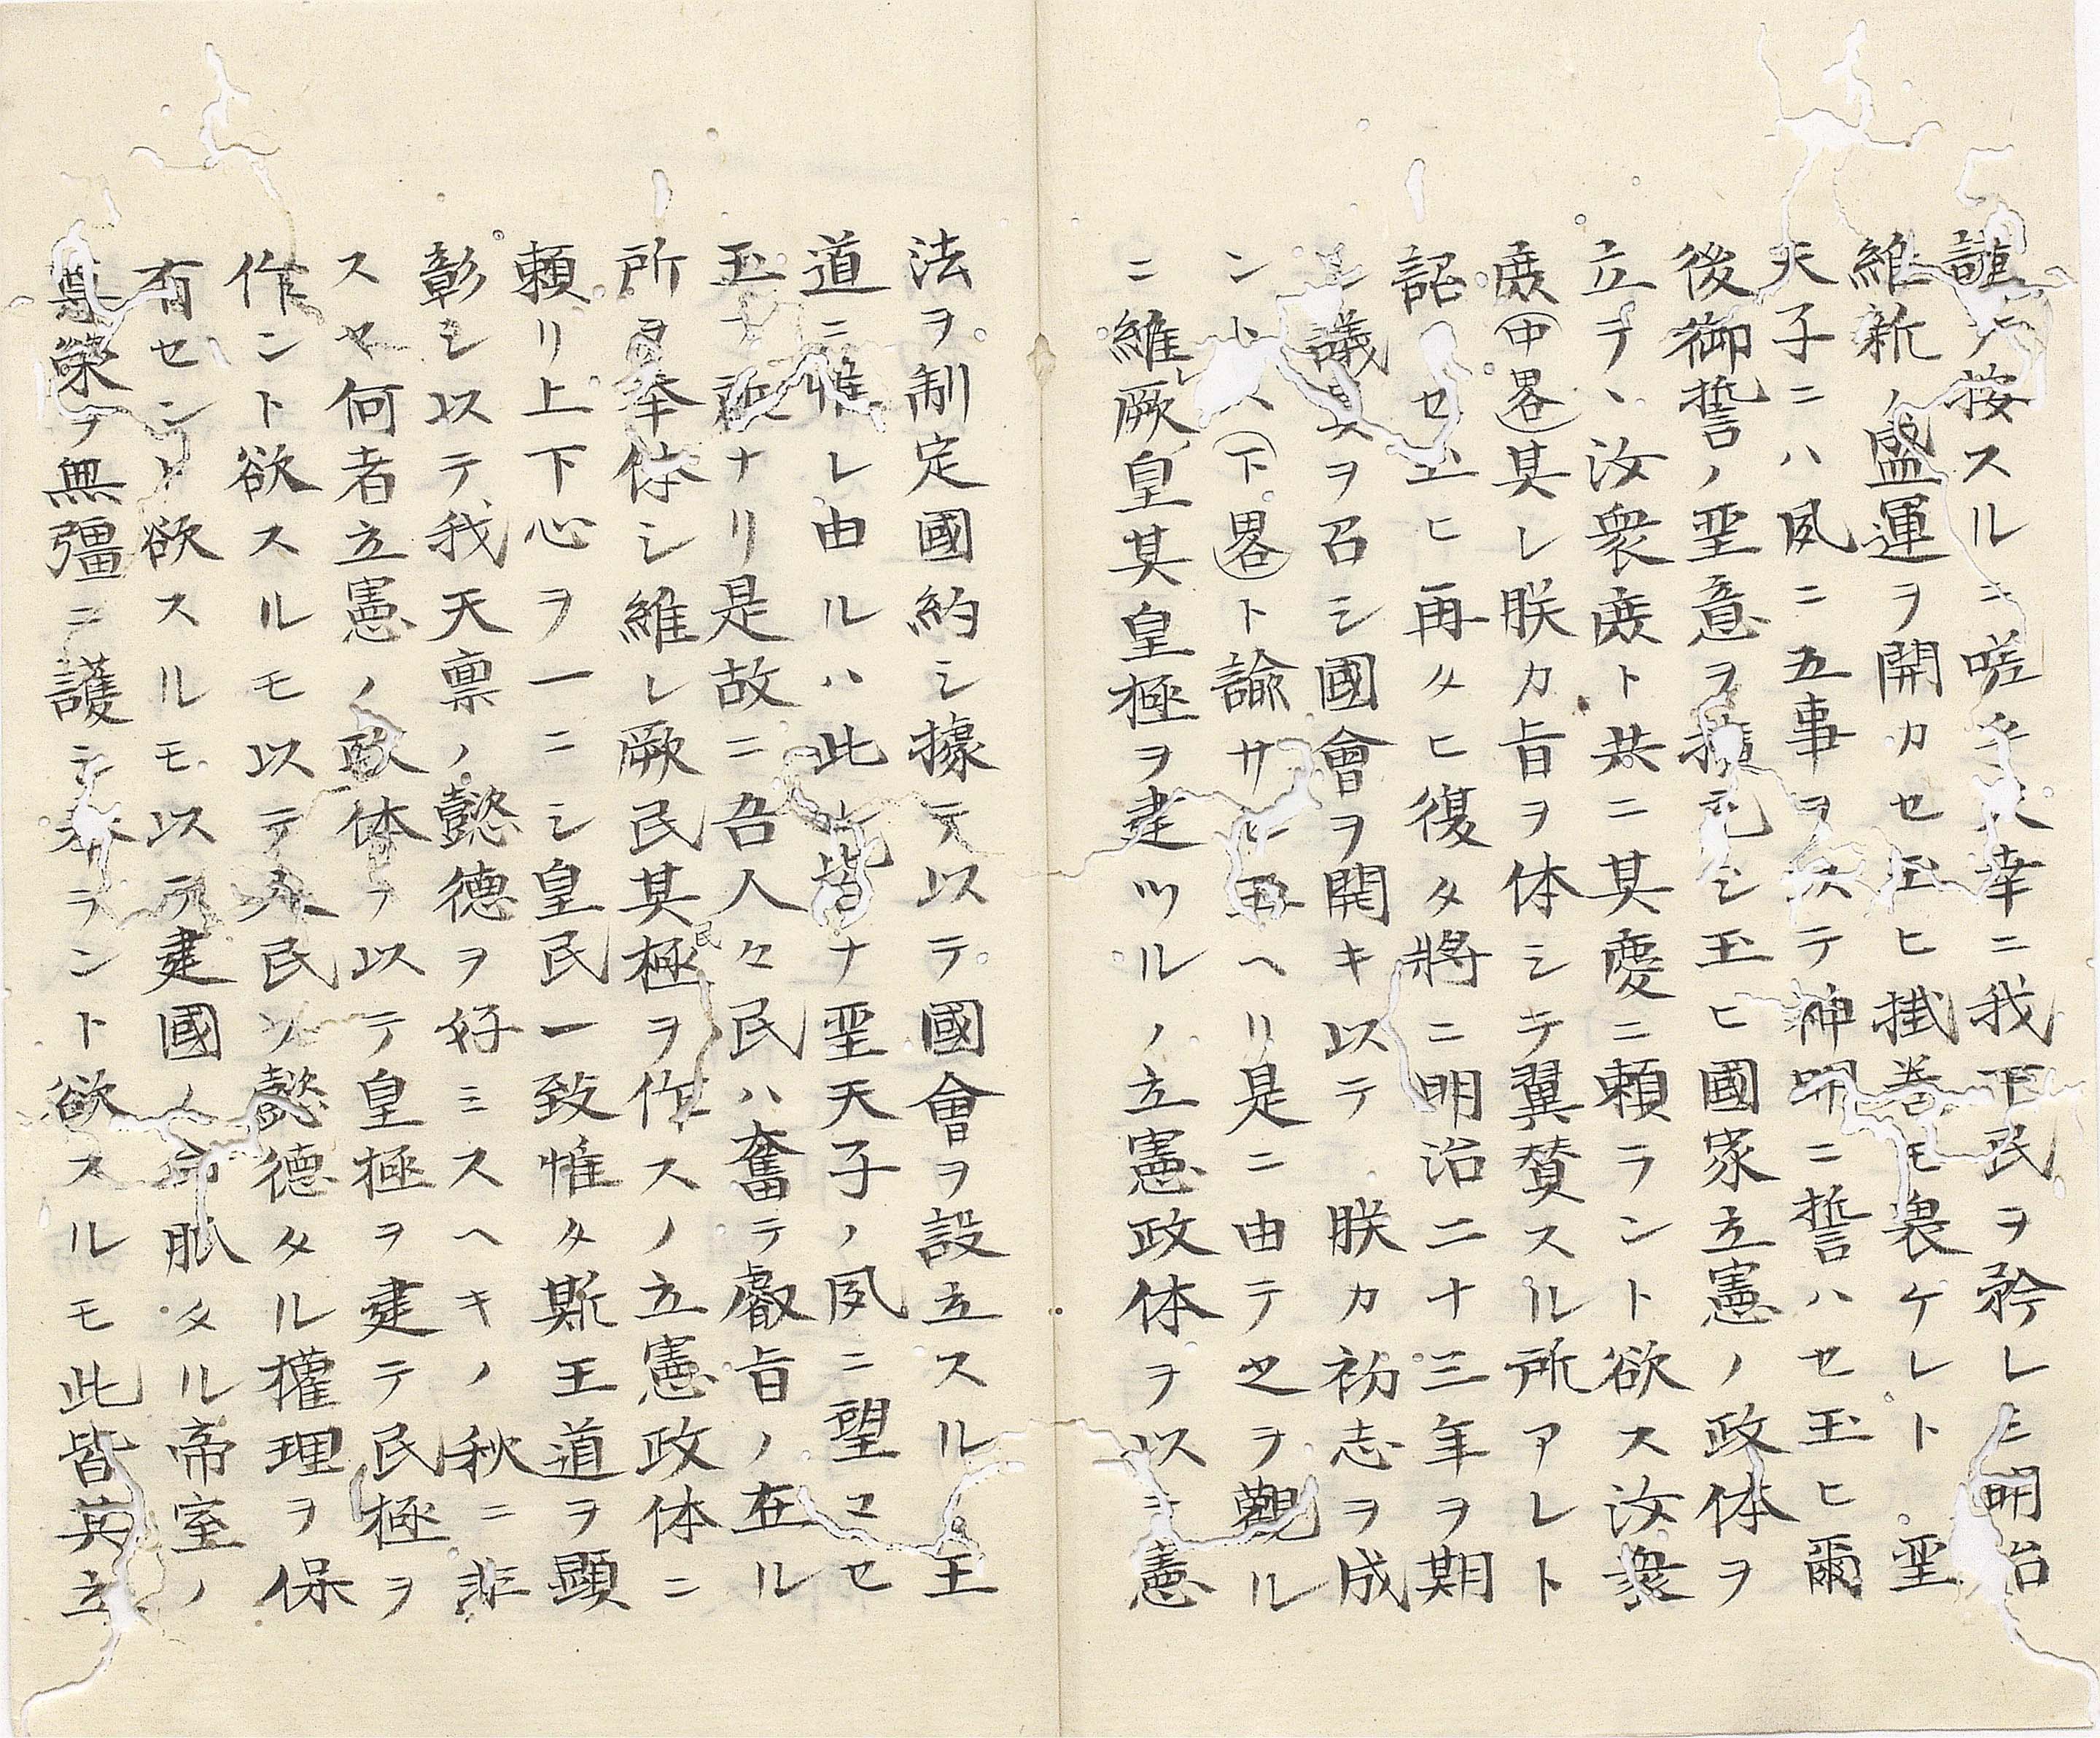 謹テ按スルニ嗟乎天幸ニ我下民ヲ矜レミ明治
維新ノ盛運ヲ開カセ玉ヒ掛巻モ畏ケレト　聖
天子ニハ夙ニ五事ヲ以テ神明ニ誓ハセ玉ヒ爾
後御誓ノ聖意ヲ擴充シ玉ヒ國家立憲ノ政体ヲ
立テ、汝衆庻ト共ニ其慶ニ頼ラント欲ス汝衆
庻(中畧)其レ朕カ旨ヲ体シテ翼賛スル所アレト
詔セ玉ヒ再タヒ復タ將ニ明治二十三年ヲ期
シ議員ヲ召シ國會ヲ開キ以テ　朕カ初志ヲ成
ントス(下畧)ト諭サセ玉ヘリ是ニ由テ之ヲ觀ル
ニ維レ厥皇其皇極ヲ建ツルノ立憲政体ヲ以テ憲
法ヲ制定國約シ據テ以テ國會ヲ設立スル　王
道ニ惟レ由ルハ此レ皆ナ聖天子ノ夙ニ望マセ
玉ナリ是故ニ吾人々民ハ奮テ叡旨ノ在ル
所ヲ奉体シ維レ厥民其民極ヲ作スノ立憲政体ニ
頼リ上下心ヲ一ニシ皇民一致惟タ斯王道ヲ顕
彰シ以テ我天禀ノ懿德ヲ好ミスヘキノ秋ニ非
スヤ何者立憲ノ政体ヲ以テ皇極ヲ建テ民極ヲ
作ント欲スルモ以テ人民ノ懿德タル權理ヲ保
有セント欲スルモ以テ建國ノ命脈タル帝室ノ
尊榮ヲ無彊ニ護シ奉ラント欲スルモ此皆其立